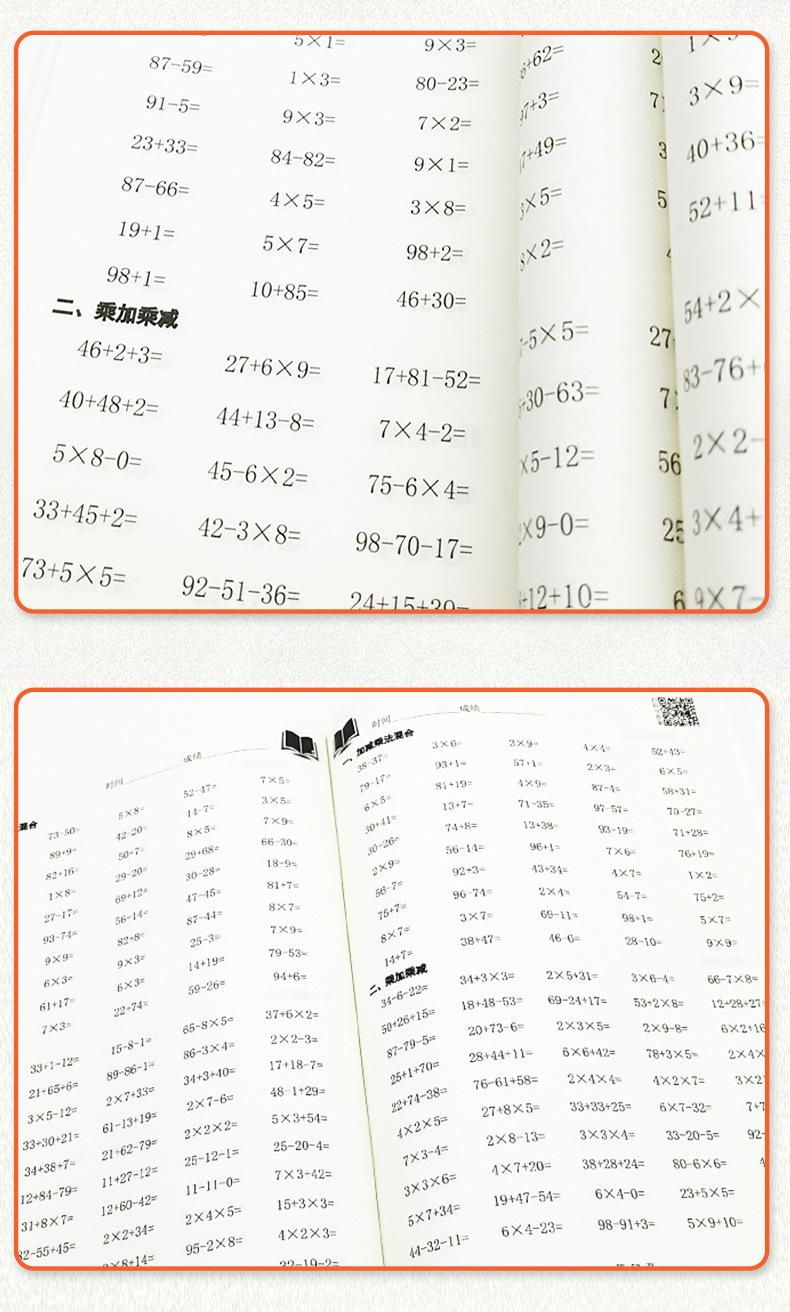 5×1= 9×3=
87-59= 1×3= 80-23=
91-5= 9×3= 7×2=
23+33= 84-82= 9×1=
87-66= 4×5= 3×8=
19+1= 5×7= 98+2=
98+1= 10+85= 46+30=
二、乘加乘减
46+2+3= 27+6×9= 17+81-52=
40+48+2= 44+13-8= 7×4-2=
5×8-0= 45-6×2= 75-6×4=
33+45+2= 42-3×8= 98-70-17=
73+5×5= 92-51-36= 24+15+39=
3×9=
40+36=
52+11=
54+2×
83-76+
2×2-
3×4+
9×7-
时间 成绩
混合
73-50= 5×8= 52-47= 7×5=
89+9= 42-20= 14-7= 3×5=
82+16= 50+7= 8×5= 7×9=
1×8= 29-20= 29+68= 66-30=
27-17= 69+12= 30-28= 18-9=
93-74= 56-14= 47-45= 81+7=
9×9= 82+8= 87-44= 8×7=
6×3= 9×3= 25-3= 7×9=
61+17= 6×3= 14+19= 79-53=
7×3= 22+74= 59-26= 94+6=
33+1-12= 15-8-1= 65-8×5= 37+6×2=
21+65+6= 89-86-1= 86-3×4= 2×2-3=
3×5-12= 2×7+33= 34+3+40= 17+18-7=
33+30+21= 61-13+19= 2×7-6= 48-1+29=
34+38+7= 21+62-79= 2×2×2= 5×3+54=
12+84-79= 11+27-12= 25-12-1= 25-20-4=
31+8×7= 12+60-42= 11-11-0= 7×3+42=
82-55+45= 2×2+34= 2×4×5= 15+3×3=
×8+14= 95-2×8= 4×2×3=
32-19-2=
时间 成绩
一、加减乘法混合
38-37= 3×6= 3×9= 4×4= 52+43=
79-17= 93+1= 57+1= 2×3= 6×5=
6×5= 81+19= 4×9= 87-4= 58+31=
30+41= 13+7= 71-35= 97-57= 70-27=
30-26= 74+8= 13+38= 93-19= 71+28=
2×9= 56-14= 96+1= 7×6= 76+19=
56-7= 92+3= 43+34= 4×7= 1×2=
75+7= 96-74= 2×4= 54-7= 75+2=
8×7= 3×7= 69-11= 98+1= 5×7=
14+7= 38+47= 46-6= 28-10= 9×9=
二、乘加乘减
34-6-22= 34+3×3= 2×5+31= 3×6-4= 66-7×8=
50+26+15= 18+48-53= 69-24+17= 53+2×8= 12+28+27=
87-79-5= 20+73-6= 2×3×5= 2×9-8= 6×2+16
25+1+70= 28+44+11= 6×6+42= 78+3×5= 2×4×
22+74-38= 76-61+58= 2×4×4= 4×2×7= 3×2
4×2×5= 27+8×5= 33+33+25= 6×7-32= 7+7
7×3-4= 2×8-13= 3×3×4= 33-20-5= 92-
3×3×6= 4×7+20= 38+28+24= 80-6×6= 4
5×7+34= 19+47-54= 6×4-0= 23+5×5=
44-32-11= 6×4-23= 98-91+3= 5×9+10=